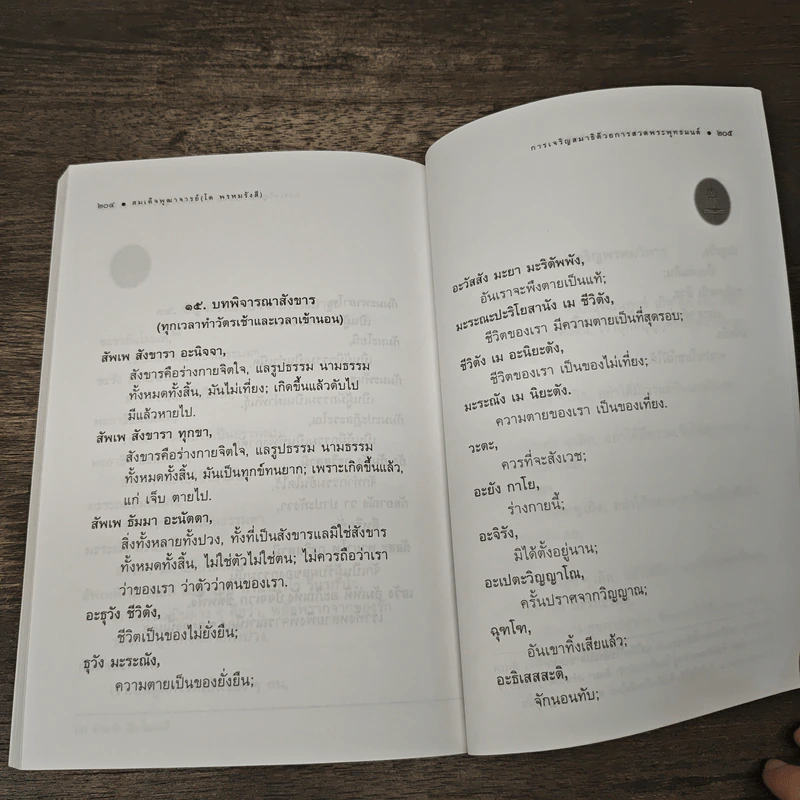 ๒๐๔ ● สมเด็จพุฒาจารย์(โต พรหมรังสี)
๑๕. บทพิจารณาสังขาร
(ทุกเวลาทำวัตรเช้าและเวลาเข้านอน)
สัพเพ สังขารา อะนิจจา,
สังขารคือร่างกายจิตใจ, แลรูปธรรม นามธรรม
ทั้งหมดทั้งสิ้น, มันไม่เที่ยง; เกิดขึ้นแล้วดับไป
มีแล้วหายไป.
สัพเพ สังขารา ทุกขา,
สังขารคือร่างกายจิตใจ, แลรูปธรรม นามธรรม
ทั้งหมดทั้งสิ้น, มันเป็นทุกข์ทนยาก; เพราะเกิดขึ้นแล้ว,
แก่ เจ็บ ตายไป.
สัพเพ ธัมมา อะนัตตา,
สิ่งทั้งหลายทั้งปวง, ทั้งที่เป็นสังขารแลมิใช่สังขาร
ทั้งหมดทั้งสิ้น, ไม่ใช่ตัวไม่ใช่ตน; ไม่ควรถือว่าเรา
ว่าของเรา ว่าตัวว่าตนของเรา.
อะธุวัง ชีวิตัง,
ชีวิตเป็นของไม่ยั่งยืน;
ธุวัง มะระณัง,
ความตายเป็นของยั่งยืน;
การเจริญสมาธิด้วยการสวดพระพุทธมนต์ ● ๒๐๕
อะวัสสัง มะยา มะริตัพพัง,
อันเราจะพึงตายเป็นแท้;
มะระณะปะริโยสานัง เม ชีวิตัง,
ชีวิตของเรา มีความตายเป็นที่สุดรอบ;
ชีวิตัง เม อะนิยะตัง,
ชีวิตของเรา เป็นของไม่เที่ยง;
มะระณัง เม นิยะตัง.
ความตายของเรา เป็นของเที่ยง.
วะตะ,
ควรที่จะสังเวช;
อะยัง กาโย,
ร่างกายนี้;
อะจิรัง,
มิได้ตั้งอยู่นาน;
อะเปตะวิญญาโณ,
ครั้นปราศจากวิญญาณ;
ฉุฑโฑ,
อันเขาทิ้งเสียแล้ว;
อะธิเสสสะติ,
จักนอนทับ;